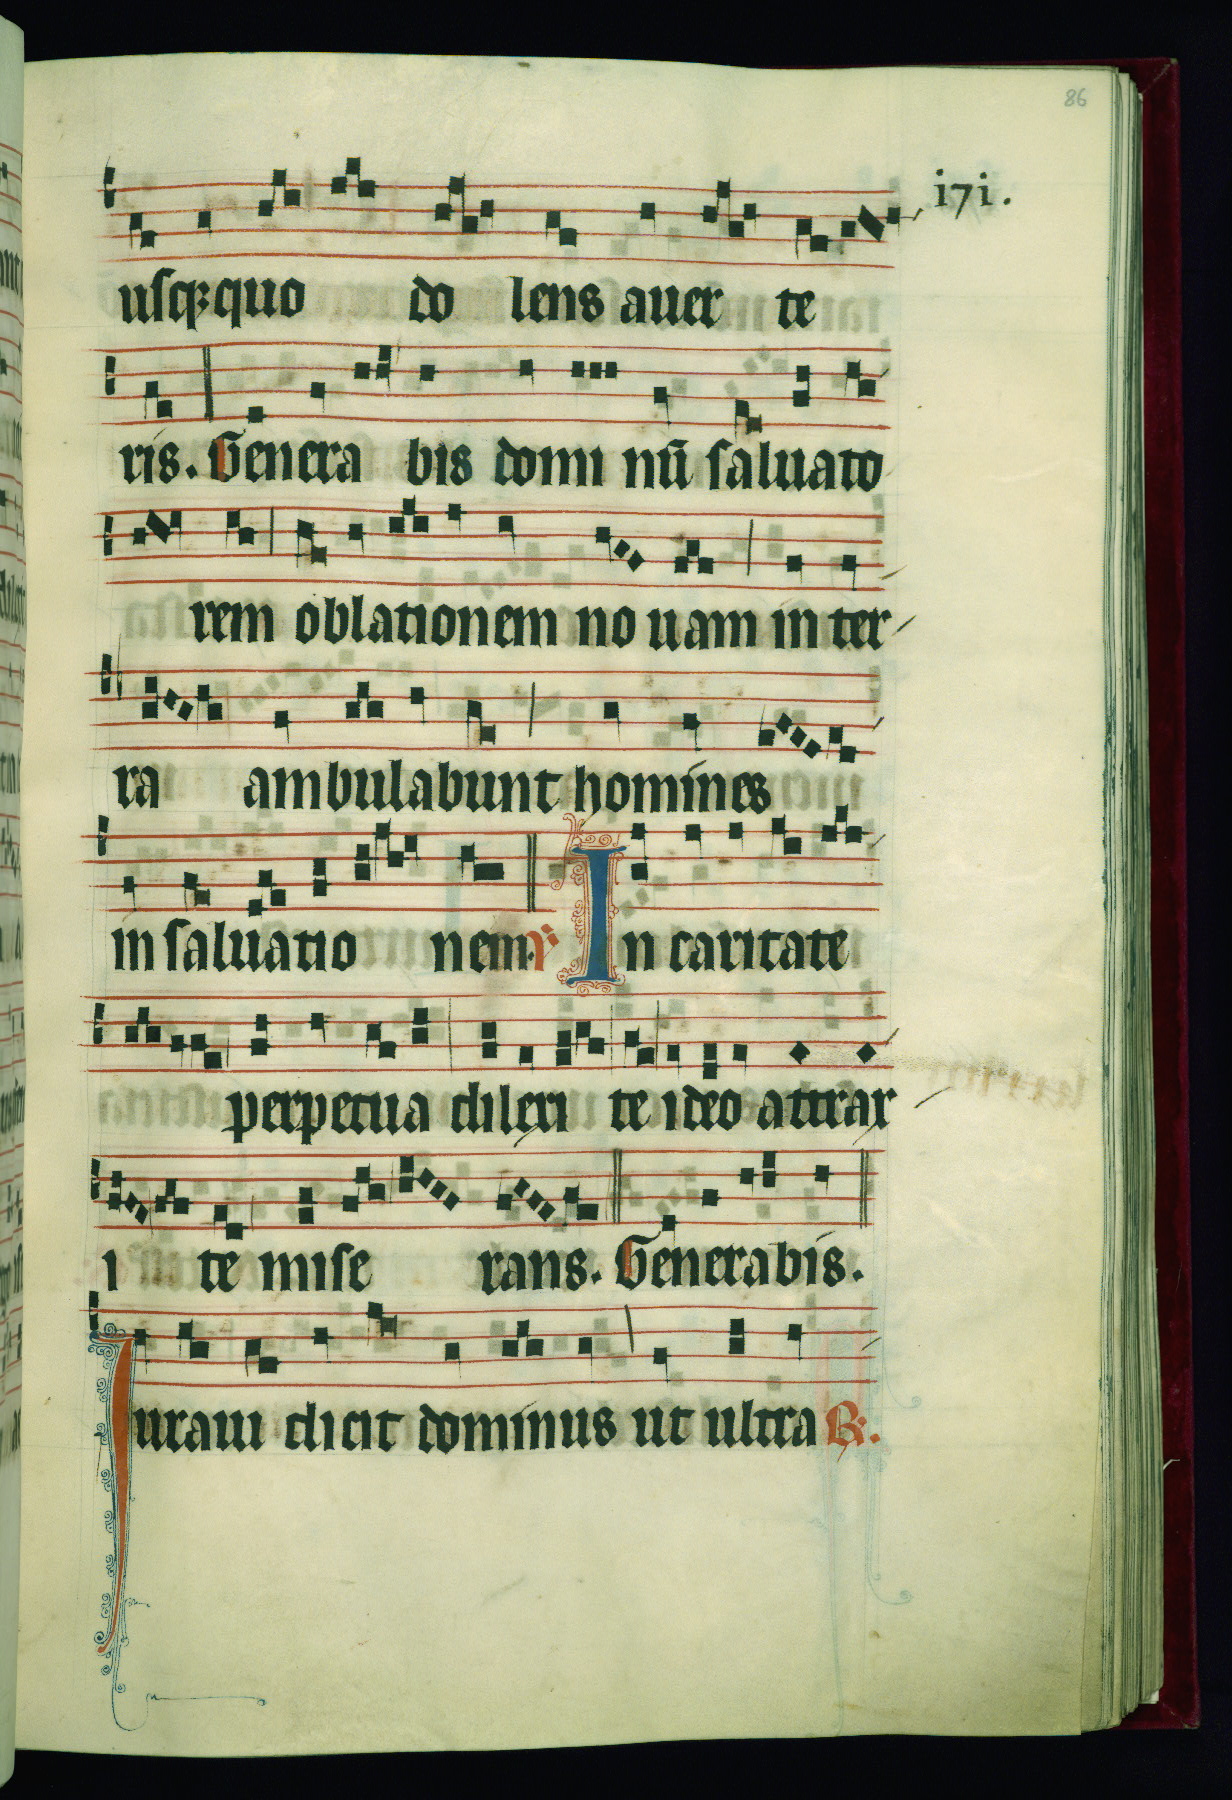 86
i7i.
uſqꝫquo do lens auer te
ris. Genera bis domi nū ſaluato
rem oblationem no uam in ter
ra ambulabunt homines
in ſaluatio nem. ℣ In caritate
perpetua dilexi te ideo attrax
i te miſe rans. Generabis.
Iuraui dicit dominus ut ultra ℞.